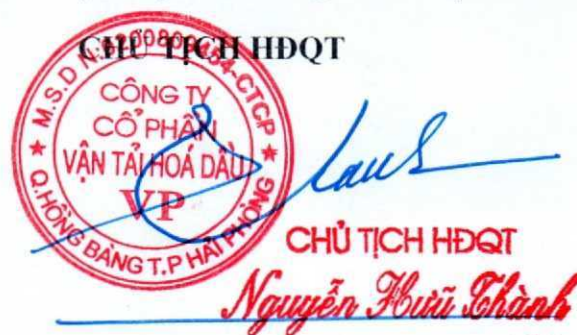 CHỦ TỊCH HĐQT
M.S.D.N: -CTCP
CÔNG TY
CỔ PHẦN
VẬN TẢI HOÁ DẦU
VP
Q.HỒNG BÀNG T.P HẢI PHÒNG
CHỦ TỊCH HĐQT
Nguyễn Hữu Thành